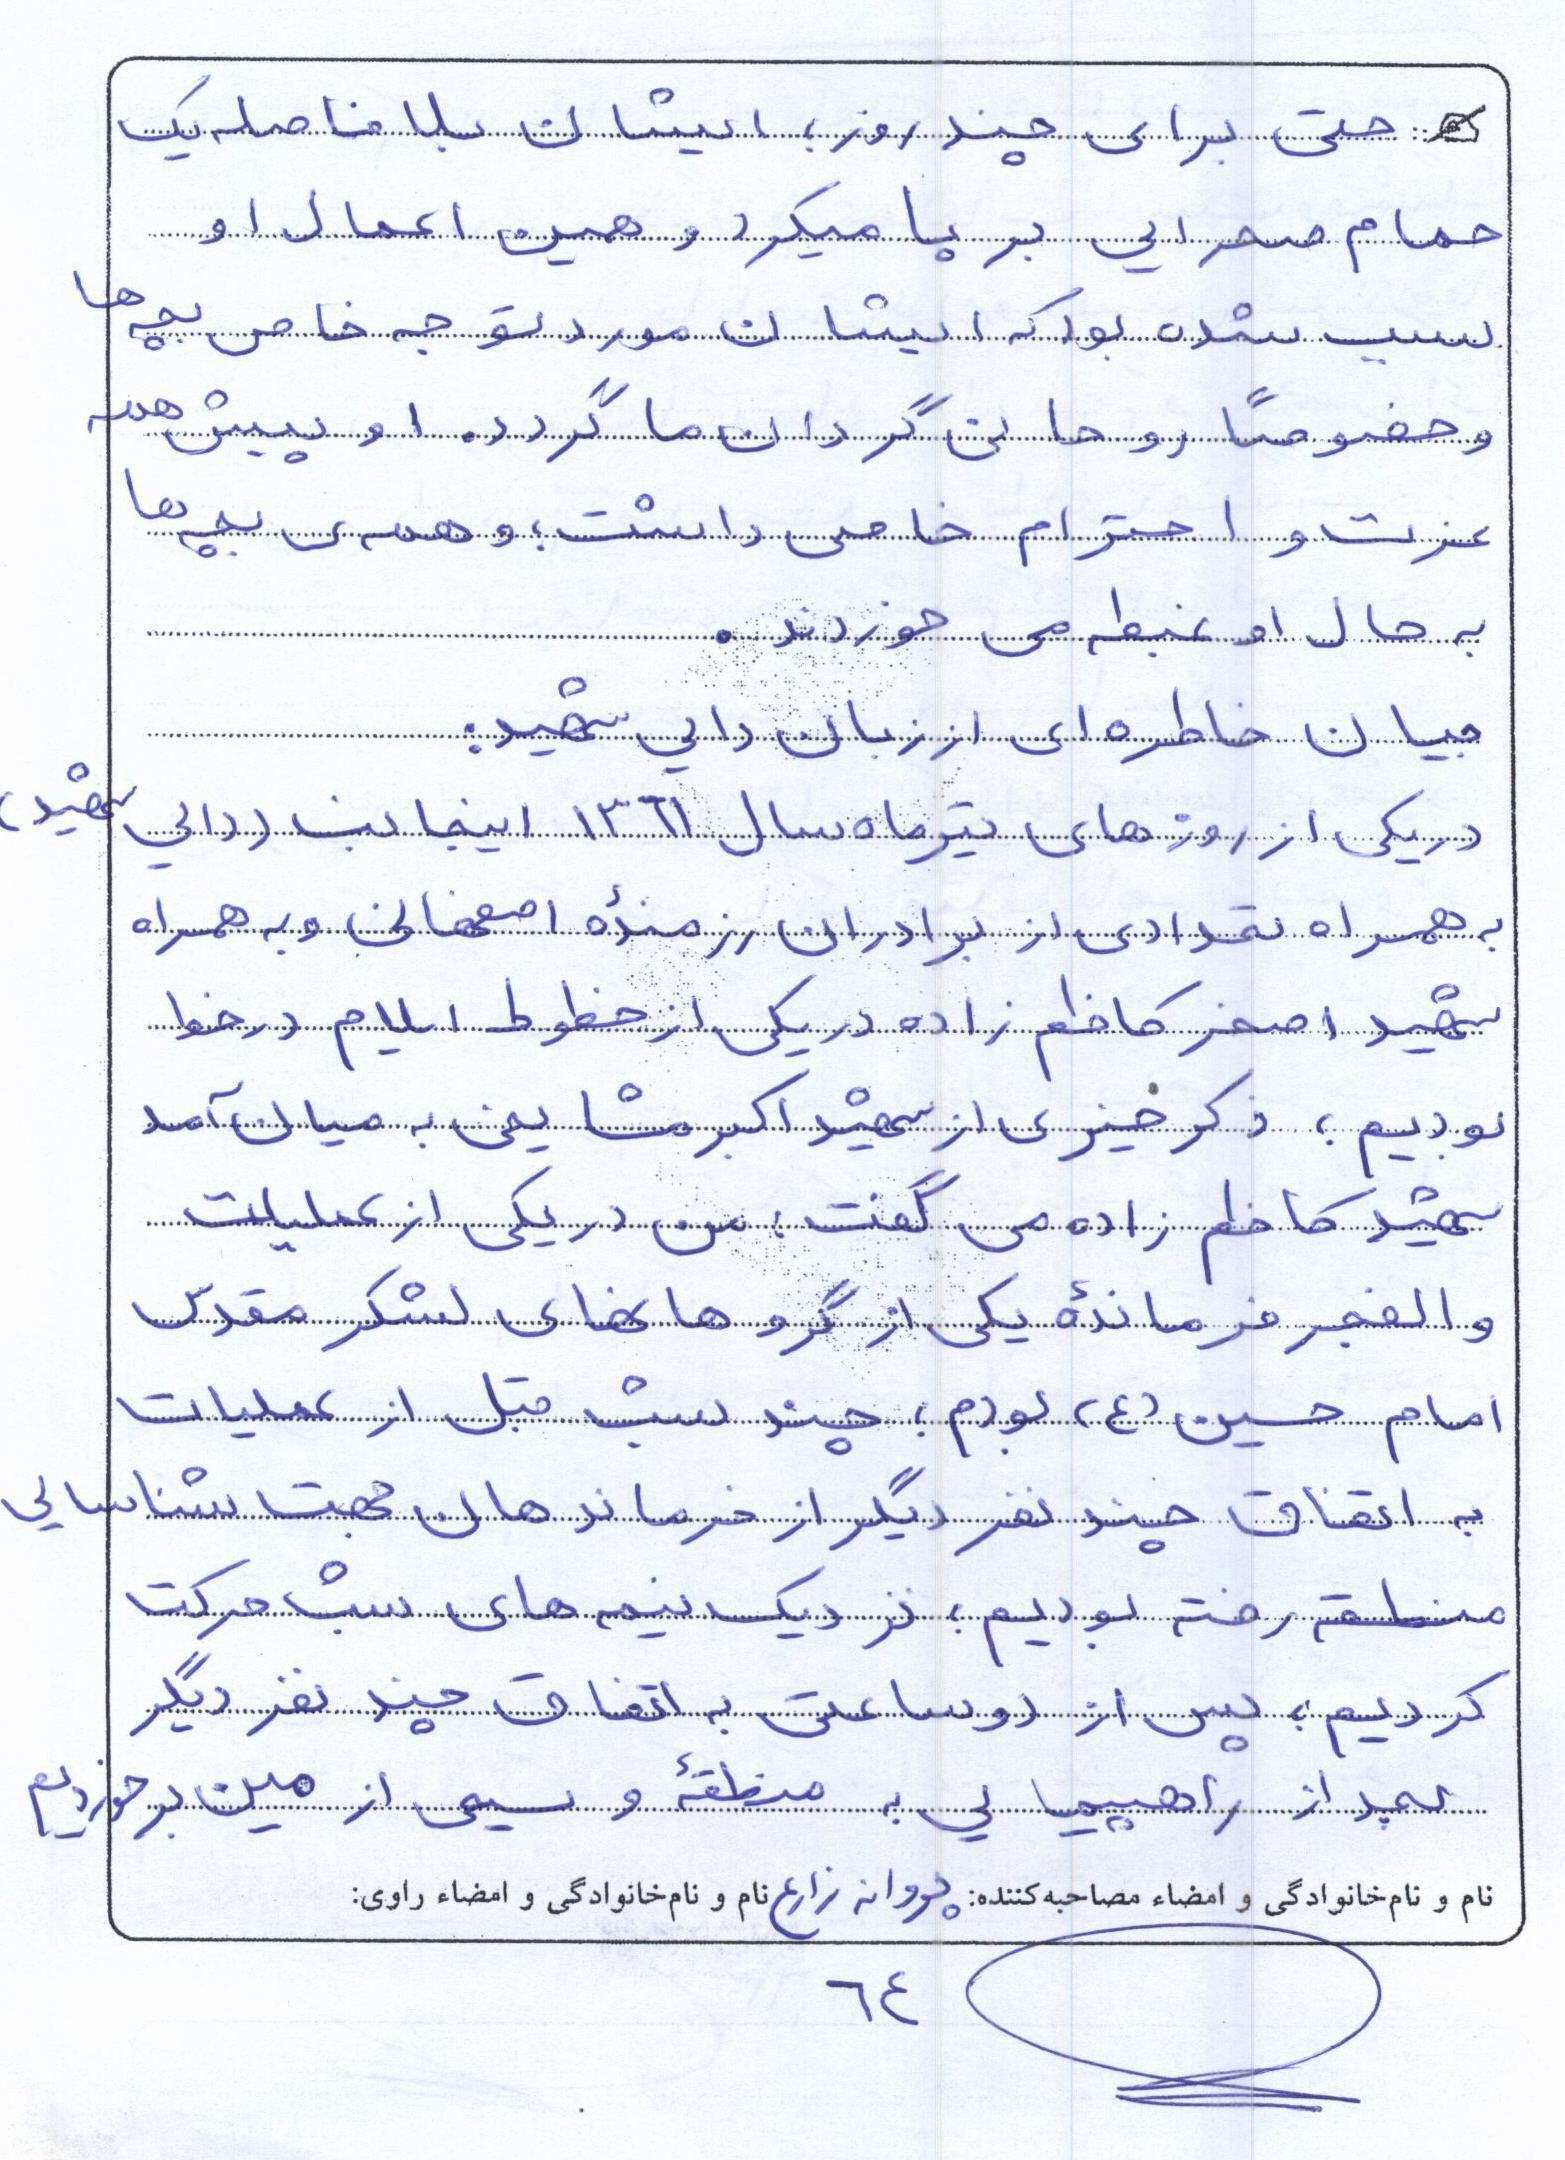 حتی برای چند روز؛ ایشان بلافاصله یک
حمام صحرایی بر پا میکرد و همین اعمال او
سبب شده بود که ایشان مورد توجه خاص بچه ها
و خصوصاً روحانی گردان ما گردد. او پیش همه
عزت و احترام خاصی داشت؛ و همه ی بچه ها
به حال او غبطه می خوردند.
بیان خاطره ای از زبان دایی شهید:
در یکی از روزهای تیرماه سال ۱۳٦۱ اینجانب (دایی شهید)
به همراه تعدادی از برادران رزمندهٔ اصفهانی و به همراه
شهید اصغر کاظم زاده در یکی از خطوط ایلام در خط
بودیم؛ ذکر خیزی از شهید اکبر مشایخی به میان آمد
شهید کاظم زاده می گفت؛ من در یکی از عملیات
والفجر فرماندهٔ یکی از گروهانهای لشکر مقدس
امام حسین (ع) بودم؛ چند شب قبل از عملیات
به اتفاق چند نفر دیگر از فرماندهان جهت شناسایی
منطقه رفته بودیم؛ نزدیک نیمه های شب حرکت
کردیم؛ پس از دو ساعتی به اتفاق چند نفر دیگر
بعد از راهپیمایی به منطقهٔ وسیعی از مین برخوردیم
نام و نام‌خانوادگی و امضاء مصاحبه‌کننده: پروانه زارع نام و نام‌خانوادگی و امضاء راوی:
٦٤